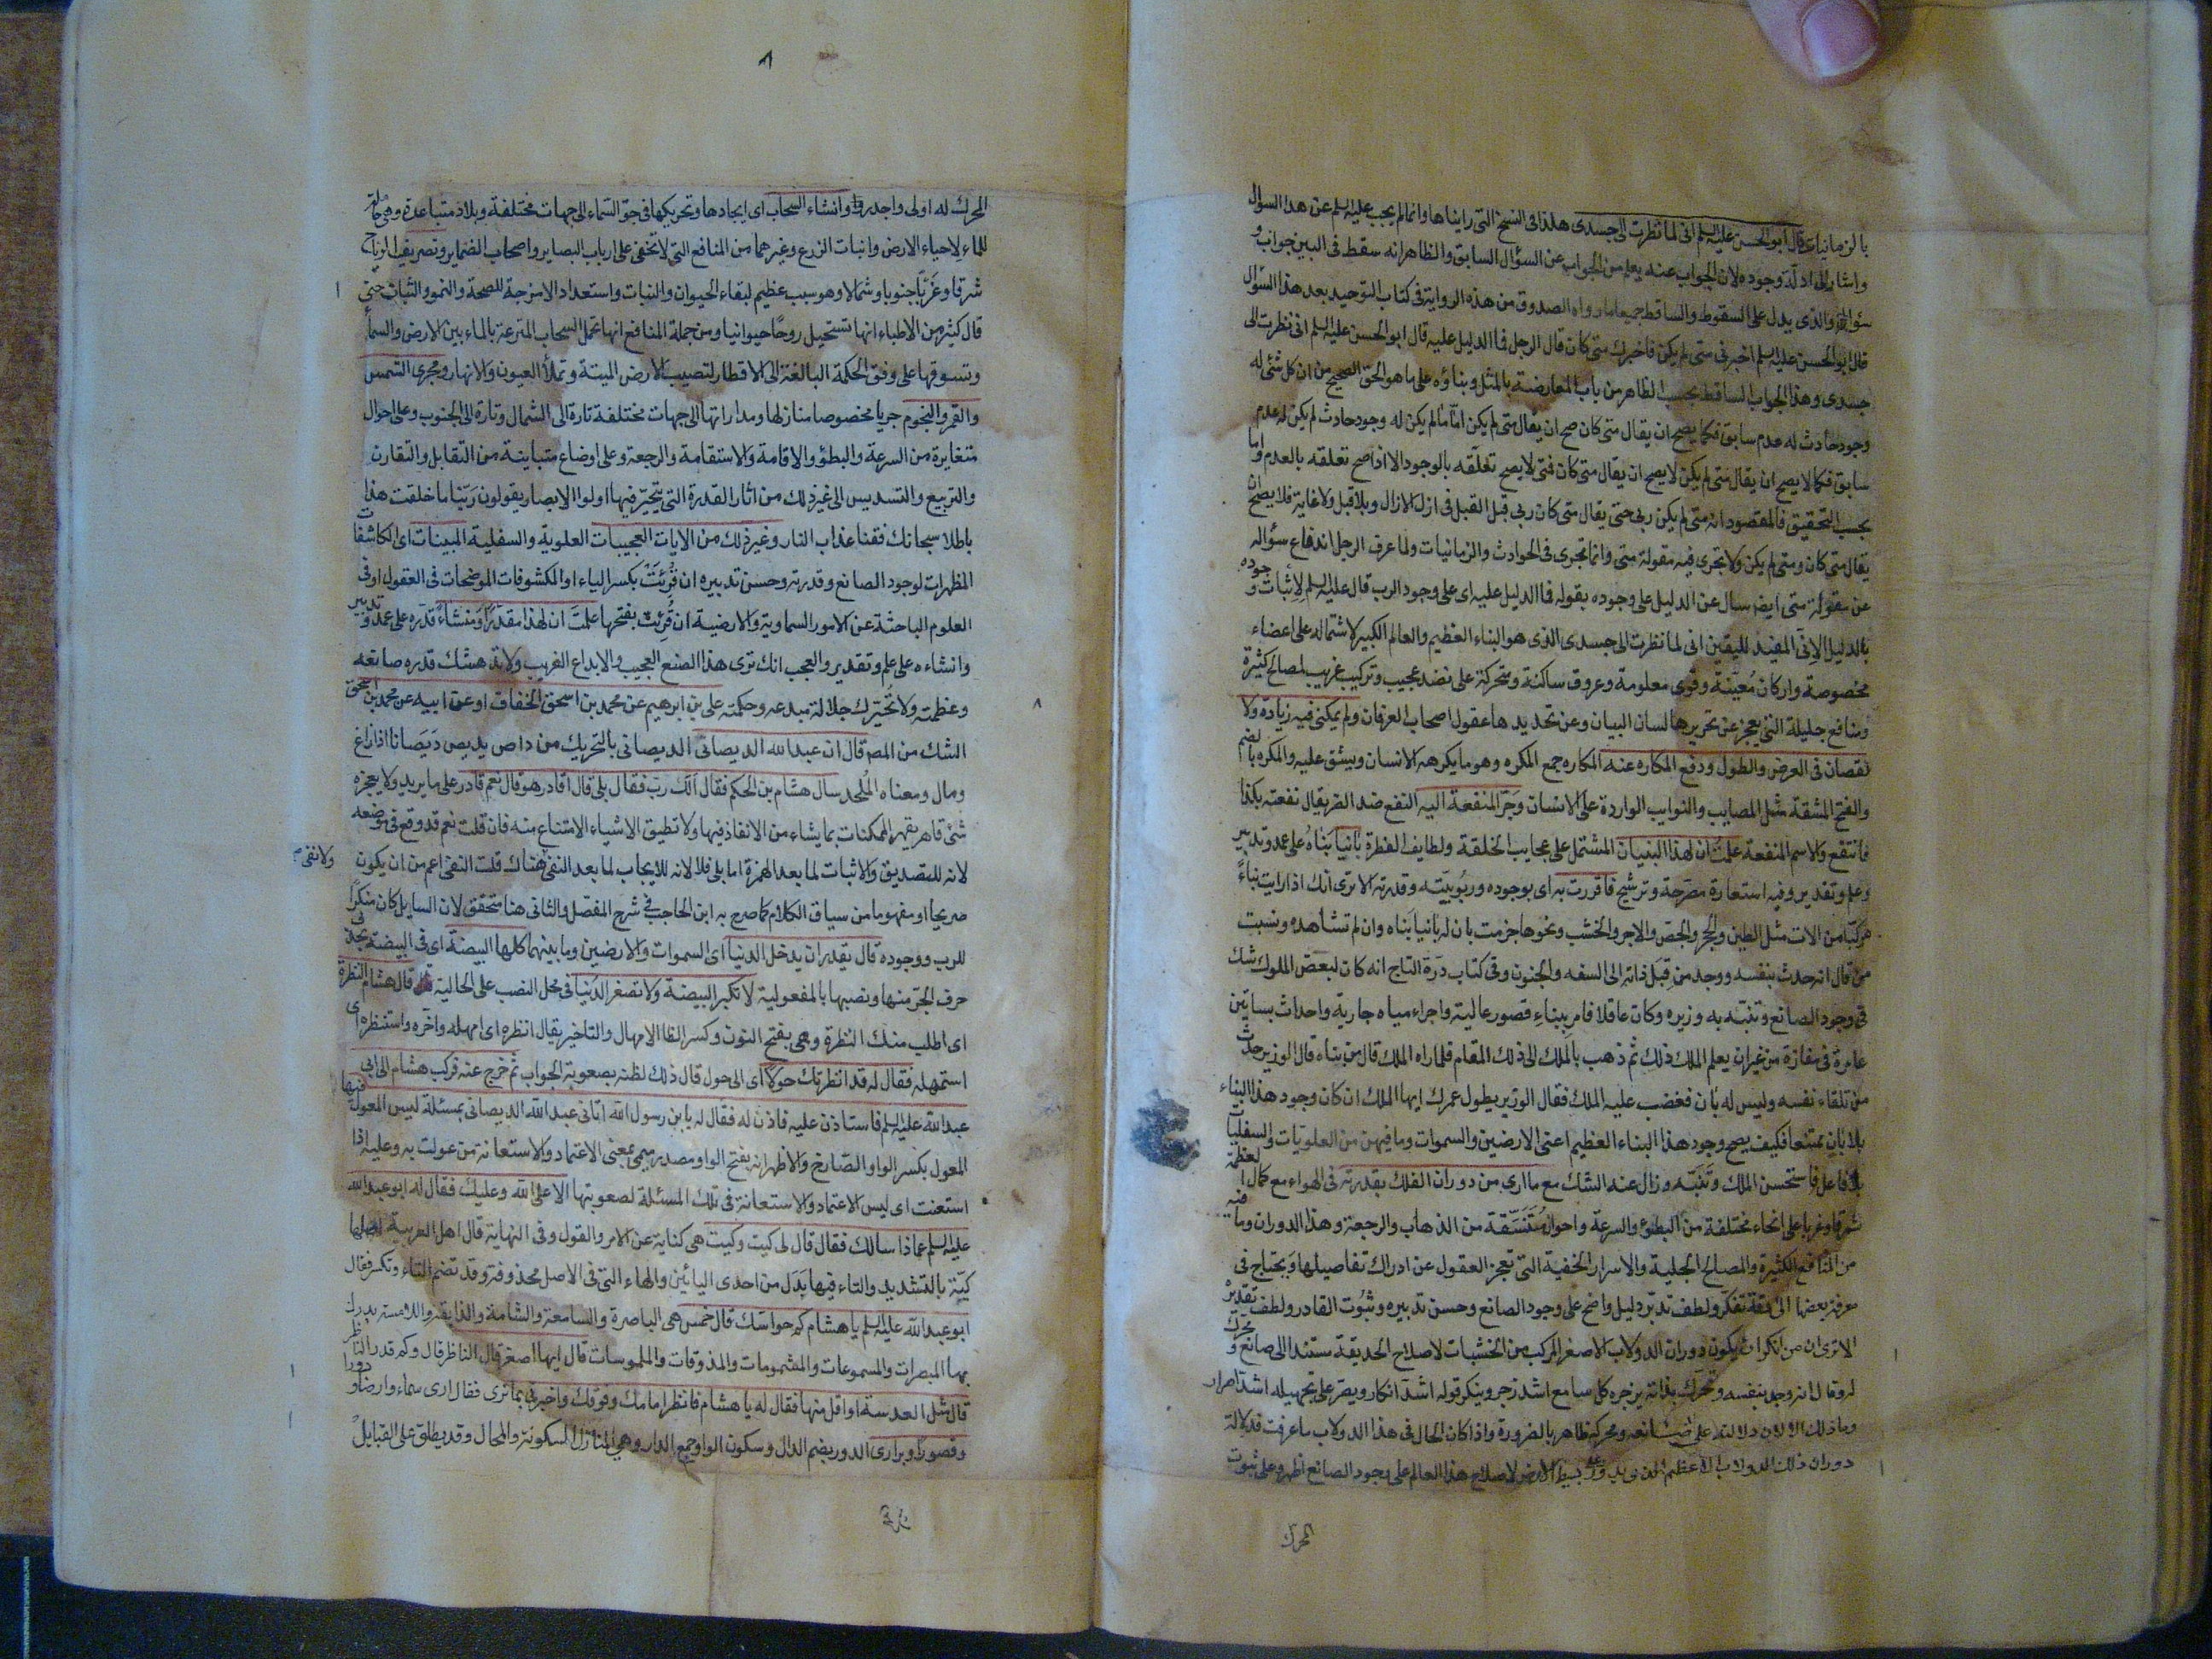 بالزمانيات فقال ابو الحسن عليه السلم انى لما نظرت الى جسدى هكذا فى النسخ التى رايناها وانما لم يجب عليه السلم عن هذا السؤال
واشار الى ادلة وجوده لان الجواب عنه يعلم من الجواب عن السؤال السابق والظاهر انه سقط فى البين جواب و
سؤال آخر والذى يدل على السقوط والساقط جميعا ما رواه الصدوق من هذه الرواية فى كتاب التوحيد بعد هذا السؤال
قال ابو الحسن عليه السلم اخبرنى متى لم يكن فاخبرك متى كان قال الرجل فما الدليل عليه قال ابو الحسن عليه السلم انى نظرت الى
جسدى وهذا الجواب الساقط بحسب الظاهر من باب المعارضة بالمثل وبناؤه على ما هو الحق الصحيح من ان كل شئ له
وجود حادث له عدم سابق فكما يصح ان يقال متى كان صح ان يقال متى لم يكن امّا ما لم يكن له وجود حادث لم يكن له عدم
سابق فكما لا يصح ان يقال متى لم يكن لا يصح ان يقال متى كان فمتى لا يصح تعلّقه بالوجود الا اذا صح تعلقه بالعدم واما
بحسب التحقيق فالمقصود انه متى لم يكن ربى حتى يقال متى كان ربى قبل القبل فى ازل الازال وبلا قبل ولا غاية فلا يصح ان
يقال متى كان ومتى لم يكن ولا تجرى فيه مقولة متى وانما تجرى فى الحوادث والزمانيات ولما عرف الرجل اندفاع سؤاله
عن مقولة متى ايضا سال عن الدليل على وجوده بقوله فما الدليل عليه اى على وجود الرب قال عليه السلم لإثبات وجوده
بالدليل الإنّى المفيد لليقين انى لما نظرت الى جسدى الذى هو البناء العظيم والعالم الكبير لاشتماله على اعضاء
مخصوصة واركان مُعيّنة وقوى معلومة وعروق ساكنة ومتحركة على نضد عجيب وتركيب غريب لمصالح كثيرة
ومنافع جليلة التى يعجز عن تحريرها لسان البيان وعن تحديدها عقول اصحاب العرفان ولم يمكنى فيه زيادة ولا
نقصان فى العرض والطول ودفع المكاره عنه المكاره جمع المكره وهو ما يكرهه الانسان ويشق عليه والمكره بالضم
والفتح المشقة مثل المصايب والنوايب الواردة على الانسان وجَرّ المنفعة اليه النفع ضد الضر يقال نفعته بكذا
فانتفع والاسم المنفعة علمتُ ان لهذا البنيان المشتمل على عجايب الخلقة ولطايف الفطرة بانيا بَناهُ على عمد وتدبير
وعلم وتقدير وفيه استعارة مصرّحة وترشيح فاقررت به اى بوجوده وربُوبيّته وقدرته الا ترى انك اذا رايت بناءً
مركّبا من الات مثل الطين والحجر والجص والاجر والخشب ونحوها جزمت بان له بانيا بَناه وان لم تشاهده ونسبت
من قال انه حدث بنفسه ووجد من قِبَل ذاته الى السفه والجنون وفى كتاب درّة التاج انه كان لبعض الملوك شك
فى وجود الصانع وتنبّه به وزيره وكان عاقلا فامر بِبناءِ قصور عالية واجراء مياه جارية واحداث بساتين
عامرة فى مفازة من غير ان يعلم الملك ذلك ثم ذهب بالملك الى ذلك المقام فلما راه الملك قال من بناء قال الوزير حدث
من تلقاء نفسه وليس له بان فغضب عليه الملك فقال الوزير يطول عمرك ايها الملك ان كان وجود هذا البناء
بلا بانٍ ممتنعا فكيف يصح وجود هذا البناء العظيم اعنى الارضين والسموات وما فيهن من العلويّات والسفليات
بلا فاعل فاستحسن الملك وتَنَبّه وزال عنه الشك مع ما ارى من دوران الفلك بقدرته فى الهواء مع كمال العظمة
شرقا وغربا على انحاء مختلفة من البطوء والسرعة واحوال مُتّسقة من الذهاب والرجعة وهذا الدوران وما فيه
من المنافع الكثيرة والمصالح الجلية والاسرار الخفية التى تعجز العقول عن ادراك تفاصيلها ويحتاج فى
معرفة بعضها الى دقة تفكّر ولطف تدبّر دليل واضح على وجود الصانع وحسن تدبيره وثبوت القادر ولطف تقديره
الا ترى ان من انكر ان يكون دوران الدولاب الاصغر المركب من الخشبات لاصلاح الحديقة مستندا الى صانع ومحرّك
له وقال انه وجد بنفسه وتحرّك بذاته يزجره كل سامع اشد زجر وينكر قوله اشدّ انكار ويصرّ على تجهيله اشدّ اصرار
وما ذلك الا لان دلالته على صانعه ومحركه ظاهر بالضرورة واذا كان الحال فى هذا الدولاب ما عرفت فدلالة
دوران ذلك الدولاب الاعظم على بسيط الارض لاصلاح هذا العالم على وجود الصانع اظهر وعلى ثبوت
المحرك
٨
المحرك له اولى واجدر وانشاء السحاب اى ايجادها وتحريكها فى جوّ السّماء الى جهات مختلفة وبلاد متباعدة وهى حاملة
للماء لاحياء الارض وانبات الزرع وغيرهما من المنافع التى لا تخفى على ارباب البصاير واصحاب الضماير وتصريف الرياح
شرقا وغَربًا جنوبا وشمالا وهو سبب عظيم لبقاء الحيوان والنبات واستعداد الامزجة للصحة والنمو والثبات حتى
قال كثير من الاطباء انها تستحيل روحًا حيوانيا ومن جملة المنافع انها تحمل السحاب المترعة بالماء بين الارض والسماء
وتسوقها على وفق الحكمة البالغة الى الاقطار لتصيب الارض الميتة وتملأ العيون والانهار ومجرى الشمس
والقمر والنجوم جريا مخصوصا منازلها ومداراتها الى جهات مختلفة تارة الى الشمال وتارة الى الجنوب وعلى احوال
متغايرة من السرعة والبطؤ والاقامة والاستقامة والرجعة وعلى اوضاع متباينة من التقابل والتقارن
والتربيع والتسديس الى غير ذلك من اثار القدرة التى يتحيّر فيها اولوا الابصار يقولون رَبّنا ما خلقت هذا
باطلا سبحانك فقنا عذاب النار وغير ذلك من الايات العجيبات العلوية والسفلية المبينات اى الكاشفات
المظهرات لوجود الصانع وقدرته وحسن تدبيره ان قُرِئَتْ بكسر الياء او المكشوفات الموضحات فى العقول او فى
العلوم الباحثة عن الامور السماوية والارضية ان قُرِئتْ بفتحها علمتَ ان لهذا مقدّرًا ومُنشئًا قدّره على عمد وتدبير
وانشاءه على علم وتقدير والعجب انك ترى هذا الصنع العجيب والابداع الغريب ولا يدهشك قدرة صانعه
وعظمته ولا تُحيّرك جلالة مبدعه وحكمته على بن ابرهيم عن محمد بن اسحق الخفاف او عن ابيه عن محمد بن اسحق
الشك من المصـ قال ان عبد الله الديصانى الديصانى بالتحريك من داص يديص دَيَصَانا اذا زاغ
ومال ومعناه المُلحد سال هشام بن الحكم فقال الك رب فقال بلى قال اقادر هو قال نعم قادر على ما يريد ولا يعجزه
شئ قاهر يقهر الممكنات بما يشاء من الانفاذ فيها ولا تطيق الاشياء الامتناع منه فان قلت نعم قد وقع فى موضعه
لانه للتصديق والاثبات لما بعد الهمزة اما بلى فلا لانه للايجاب لما بعد النفى هناك قلت النفى اعم من ان يكون
ولا نفى
صريحا او مفهوما من سياق الكلام كما صرح به ابن الحاجب فى شرح المفصل والثانى هنا متحقق لان السايل كان منكرًا
للرب ووجوده قال يقدر ان يدخل الدنيا اى السموات والارضين وما بينهما كلها البيضة اى فى البيضة بحذف
حرف الجر منها ونصبها بالمفعولية لا تكبر البيضة ولا تصغر الدُنيا فى محل النصب على الحالية قال هشام النظرة
اى اطلب منك النظرة وهى بفتح النون وكسر الظا الامهال والتاخير يقال انظره اى امهله واخّره واستنظره اى
استمهله فقال له قد انظرتك حولاً اى الى حول قال ذلك لظنه بصعوبة الجواب ثم خرج عنه فركب هشام الى ابى
عبد الله عليه السلم فاستاذن عليه فاذن له فقال له يا بن رسول الله اتانى عبد الله الديصانى بمسئلة ليس المعول فيها
المعول بكسر الواو الصّارخ والاظهر انه بفتح الواو مصدر ميمى بمعنى الاعتماد والاستعانة من عولت به وعليه اذا
استعنت اى ليس الاعتماد والاستعانة فى تلك المسئلة لصعوبتها الا على الله وعليك فقال له ابو عبد الله
عليه السلم عماذا سالك فقال قال لى كيت وكيت هى كناية عن الامر والقول وفى النهاية قال اهل العربية اصلها
كيّة بالتشديد والتاء فيها بَدَل من احدى اليائين والهاء التى فى الاصل محذوفة وقد تضم التاء وتكسر فقال
ابو عبد الله عليه السلم يا هشام كم حواسّك قال خمس هى الباصرة والسامعة والشامة والذايقة واللامسة يدرك
بها المبصرات والمسموعات والمشمومات والمذوقات والملموسات قال ايها اصغر قال الناظر قال وكم قدر الناظر
قال مثل العدسة او اقل منها فقال له يا هشام فانظر امامك وفوقك واخبرنى بما ترى فقال ارى سماء وارضا ودورا
وقصورًا وبرارى الدور بضم الدال وسكون الواو جمع الدار وهى المنازل المسكونة والمحال وقد يطلق على القبايل